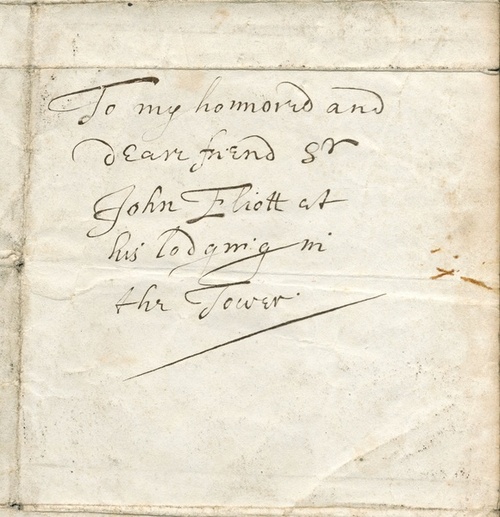 To my honnored and
deare friend Sr
John Eliott at
his lodgnig in
the Tower